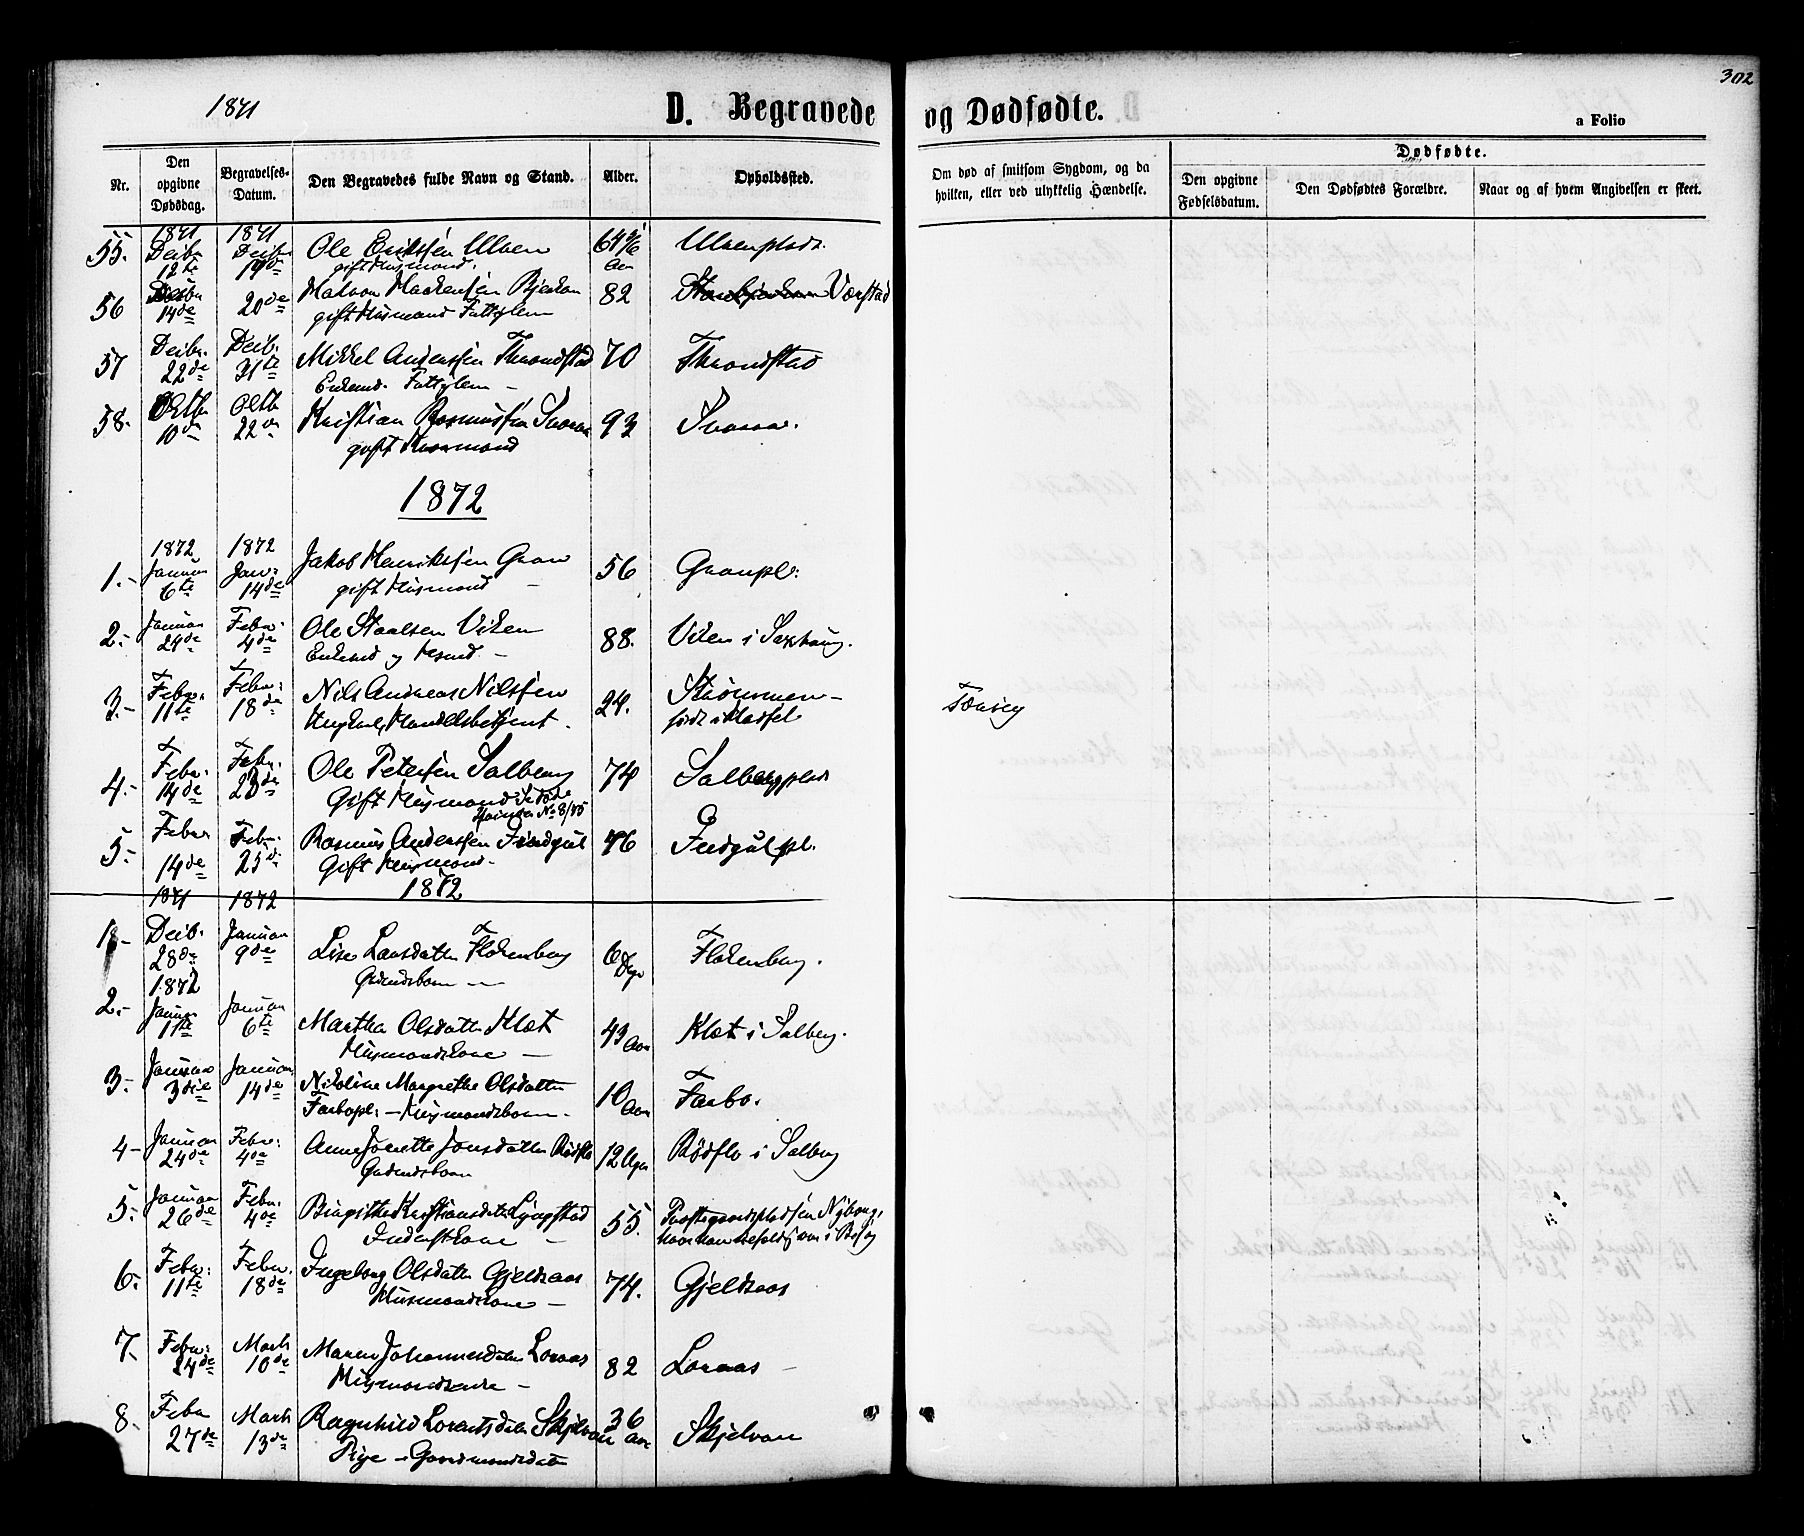 1871
D. Begravede
og Dødfødte.
302
a Folio
Nr.
Den opgivne Dødsdag.
Begravelses-Datum.
Den Begravedes fulde Navn og Stand.
Alder.
Opholdssted.
Om død af smitsom Sygdom, og da hvilken, eller ved ulykkelig Hændelse.
Dødfødte.
Den opgivne Fødselsdatum.
Den Dødfødtes Forældre.
Naar og af hvem Angivelsen er skeet.
1871 1871
55. Decbr 12te Decbr Ole Eriksen Ulven 64 Aar Ulvenplads.
gift Husmand.
56 14de 20de 82 Værstad
gift Husmand Fattiglem
57 Decbr. 22de Decb. 31te Mikkel Anderssen Throndstad 70 Throndstad
Enkemd. Fattiglem –
58. Octb 10de Octb 22de Kristian Rasmussen Svarva 93 Svarva.
gift Husmand
1872
1872 1872
1.- Januar 6te Jan: 14de Jakob Henriksen Gran 56 Granpl:
gift Husmand –
2.- Januar 24de Febr. 4de Ole Staalsen Viken 88. Viken i Saxhaug.
Enkemd og Husmd. –
3.- Febr. 11te Febr: 18de Nils Andreas Nilssen 24. Strømmen – Tæring
Ungkarl, Handelsbetjent. født i Hadsel
4.- Febr. 14de Febr. 23de Ole Petersen Salberg 74 Salbergplads
Gift Husmand Se døde No 8/85
5.- Febr 14de Febr. 25de Rasmus Anderssen 46
Gift Husmand.
1872
1871 1872
1.- Decb. 28de Januar 9de Lise Larsdatter Flokenberg 6 Dage Flokenberg.
Gaardmdsbarn –
1872
2.- Januar 1te Januar 6te Martha Olsdatter Klæt 43 Aar Klæt i Salberg.
Husmandskone –
3.- Januar 3die Januar 14de Nikoline Margrethe Olsdatter 10 Aar Farbo.
Farbopl: – Husmandsbarn.
4- Januar 24de Febr: 4de Anne Jonette Jonsdatter Rødflo 12 Uger Rødflo i Salberg
Gaardmdsbarn
5.- Januar 26de Febr. 4de Birgitha Kristiansdatter Lyngstad 55. Præstegaardspladsen Nyborg,
Inderstkone – hvor hun opholdt sig som i Besøg
6.- Febr: 11te Febr. 18de Ingeborg Olsdatter Gjeldsaas 74. Gjeldsaas
Husmandskone –
7. Febr: 24de Marts 10de Maren Johannesdatter Loraas 82 Loraas –
Husmandsenke –
8. Febr 27de Marts 13de Ragnhild Lorentsdatter Skjelvan 36 Aar Skjelvan
Pige – Gaardmandsdatter